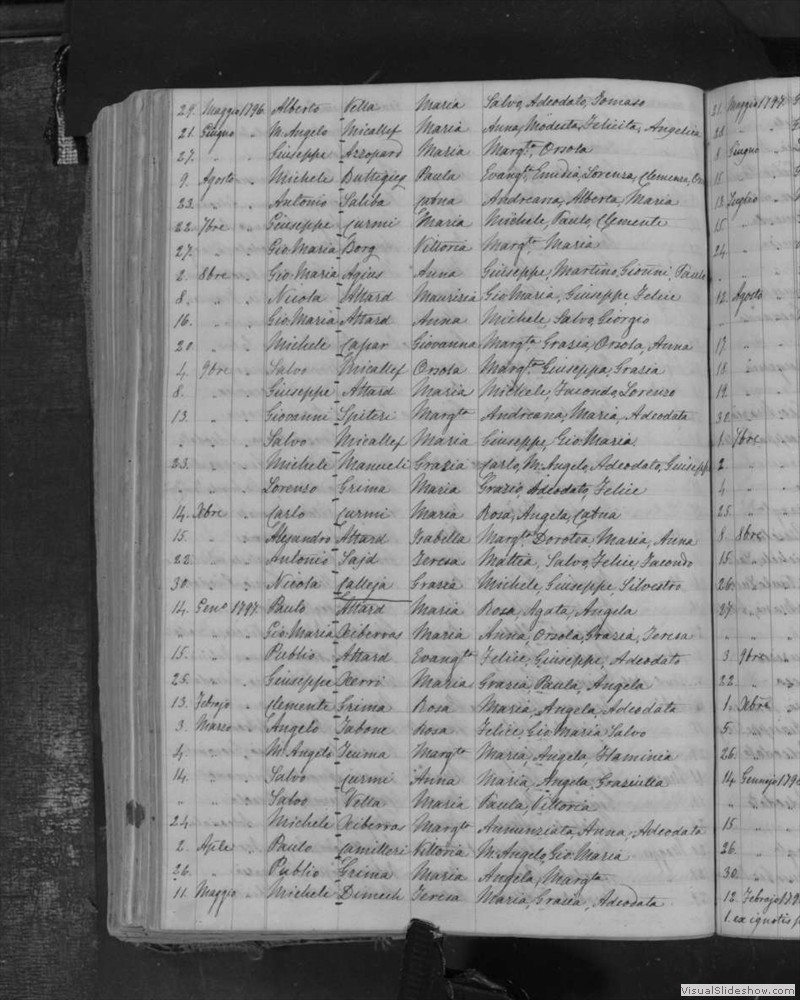 29. Maggio 1796. Alberto Vella Maria Salvo, Adeodato, Tomaso
21. Giugno " M. Angelo Micallef Maria Anna, Modesta, Felicita, Angelica
27. " " Giuseppe Azzopard Maria Margta. Orsola
9. Agosto " Michele Buttigieg Paula Evangta. Emidia, Lorenza, Clemenza,
23. " " Antonio Saliba Catna Andreana, Alberta, Maria
22. 7bre " Giuseppe Curmi Maria Michele, Paulo, Clemente
27. " " Gio Maria Borg Vittoria Margta. Maria
2. 8bre " Gio Maria Agius Anna Giuseppe, Martino, Gionni, Paulo
8. " " Nicola Attard Maurizia Gio Maria, Giuseppe, Felice
16. " " Gio Maria Attard Anna Michele, Salvo, Giorgio
20. " " Michele Capar Giovanna Margta. Grazia, Orsola, Anna
4. 9bre " Salvo Micallef Orsola Margta. Giuseppa, Grazia
8. " " Giuseppe Attard Maria Michele, Facondo, Lorenzo
13. " " Giovanni Spiteri Margta Andreana, Maria, Adeodata
" " " Salvo Micallef Maria Giuseppe, Gio Maria
23. " " Michele Manueli Grazia Carlo, M. Angelo, Adeodato, Guisepp
" " " Lorenzo Grima Maria Grazio, Adeodato, Felice
14. Xbre " Carlo Curmi Maria Rosa, Angela, Catna
15. " " Alejandro Attard Isabella Margta. Dorotea, Maria, Anna
22. " " Antonio Sajd Teresa Mattea, Salvo, Felice, Facondo
30. " " Nicola Calleja Grazia Michele, Giuseppe, Silvestro
14. Geno. 1797. Paulo Attard Maria Rosa, Agata, Angela
" " " Gio Maria Xiberras Maria Anna, Orsola, Grazia, Teresa
15. " " Publio Attard Evangta Felice, Giuseppe, Adeodato
25. " " Giuseppe Xerri Maria Grazia, Paula, Angela
13. Febrajo " Clemente Grima Rosa Maria, Angela, Adeodata
3. Marzo " Angelo Tabone Rosa Felice, Gio Maria, Salvo
4. " " M. Angelo Zeuma Margta Maria, Angela, Flaminia
14. " " Salvo Curmi Anna Maria, Angela, Graziulla
" " " Salvo Vella Maria Paula, Vittoria
24. " " Michele Xiberras Margta Annunziata, Anna, Adeodata
2. Aple " Paulo Camilleri Vittoria M. Angelo, Gio Maria
26. " " Publio Grima Maria Angela, Margta.
11. Maggio " Michele Dimech Teresa Maria, Grazia, Adeodata
21. Maggio 1797.
28. " "
8. Giugno "
11. " "
13. Luglio "
15. "
24. "
12. Agosto "
17. "
18. "
19. "
30. "
1. 7bre
2. "
4. "
25. "
8. 8bre
15. "
26. "
27. "
" "
3. 9bre
22. "
1. Xbre
5. "
26. "
14. Gennajo 179
" "
15. "
26. "
30. "
12. Febrajo 179
1. ex ignotis p
VisualSlideshow.com